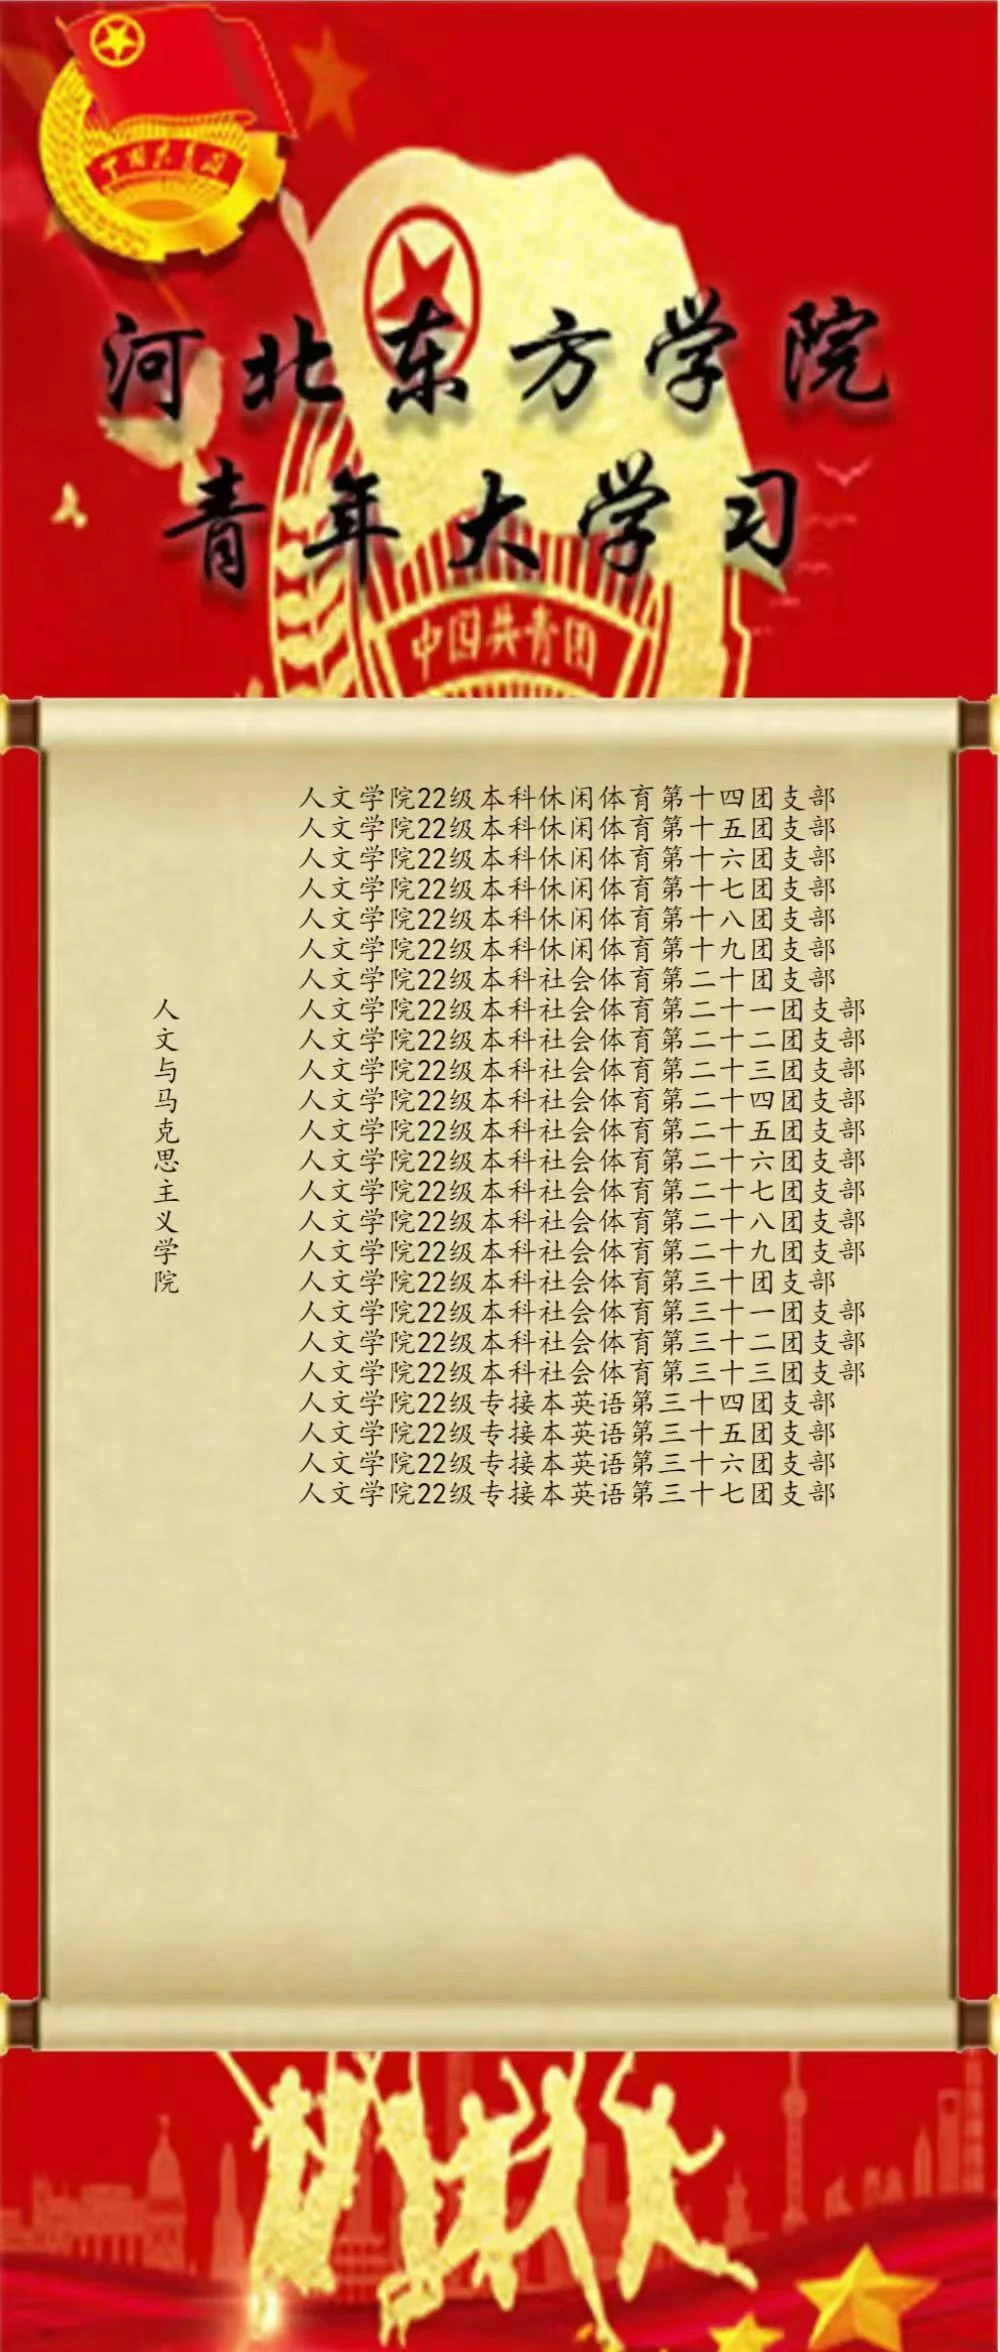 中国共青团
河北东方学院
青年大学习
中国共青团
人文与马克思主义学院
人文学院22级本科休闲体育第十四团支部
人文学院22级本科休闲体育第十五团支部
人文学院22级本科休闲体育第十六团支部
人文学院22级本科休闲体育第十七团支部
人文学院22级本科休闲体育第十八团支部
人文学院22级本科休闲体育第十九团支部
人文学院22级本科社会体育第二十团支部
人文学院22级本科社会体育第二十一团支部
人文学院22级本科社会体育第二十二团支部
人文学院22级本科社会体育第二十三团支部
人文学院22级本科社会体育第二十四团支部
人文学院22级本科社会体育第二十五团支部
人文学院22级本科社会体育第二十六团支部
人文学院22级本科社会体育第二十七团支部
人文学院22级本科社会体育第二十八团支部
人文学院22级本科社会体育第二十九团支部
人文学院22级本科社会体育第三十团支部
人文学院22级本科社会体育第三十一团支部
人文学院22级本科社会体育第三十二团支部
人文学院22级本科社会体育第三十三团支部
人文学院22级专接本英语第三十四团支部
人文学院22级专接本英语第三十五团支部
人文学院22级专接本英语第三十六团支部
人文学院22级专接本英语第三十七团支部